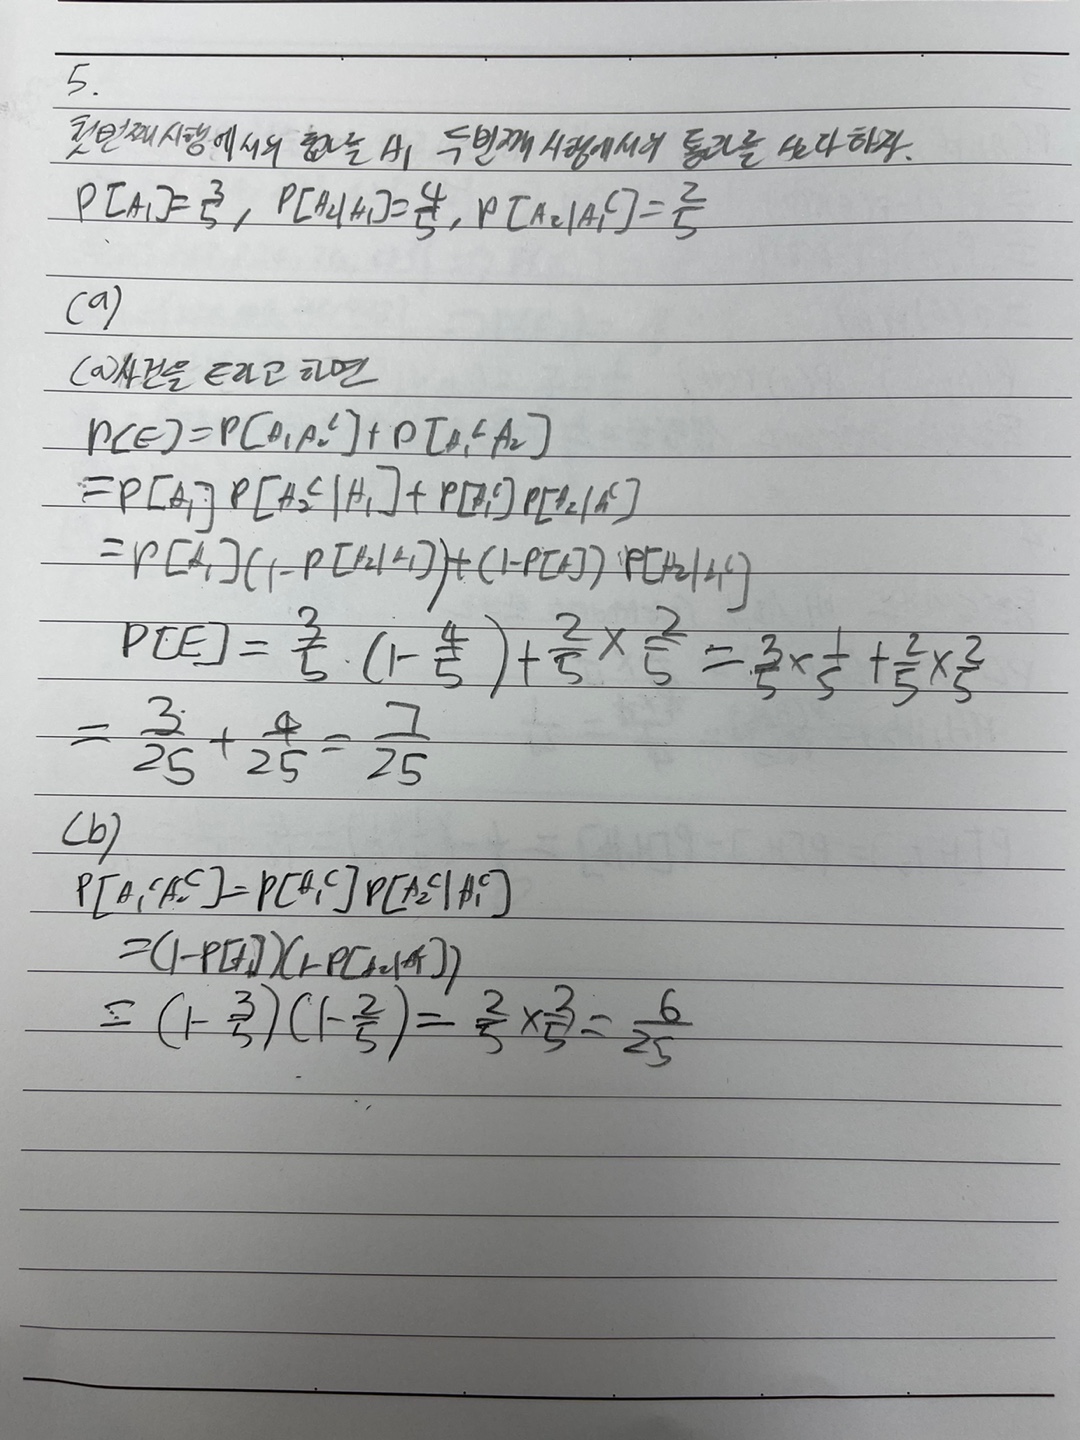 5.
첫번째 시행에서의 통과를 A₁ 두번째 시행에서의 통과를 A₂라 하자.
P[A₁]=3/5, P[A₂|A₁]=4/5, P[A₂|A₁ᶜ]=2/5
(a)
(a)사건을 E라고 하면
P[E]=P[A₁A₂ᶜ]+P[A₁ᶜA₂]
=P[A₁]P[A₂ᶜ|A₁]+P[A₁ᶜ]P[A₂|A₁ᶜ]
=P[A₁](1-P[A₂|A₁])+(1-P[A₁])P[A₂|A₁ᶜ]
P[E]=3/5·(1-4/5)+2/5×2/5=3/5×1/5+2/5×2/5
=3/25+4/25=7/25
(b)
P[A₁ᶜA₂ᶜ]=P[A₁ᶜ]P[A₂ᶜ|A₁ᶜ]
=(1-P[A₁])(1-P[A₂|A₁ᶜ])
=(1-3/5)(1-2/5)=2/5×3/5=6/25